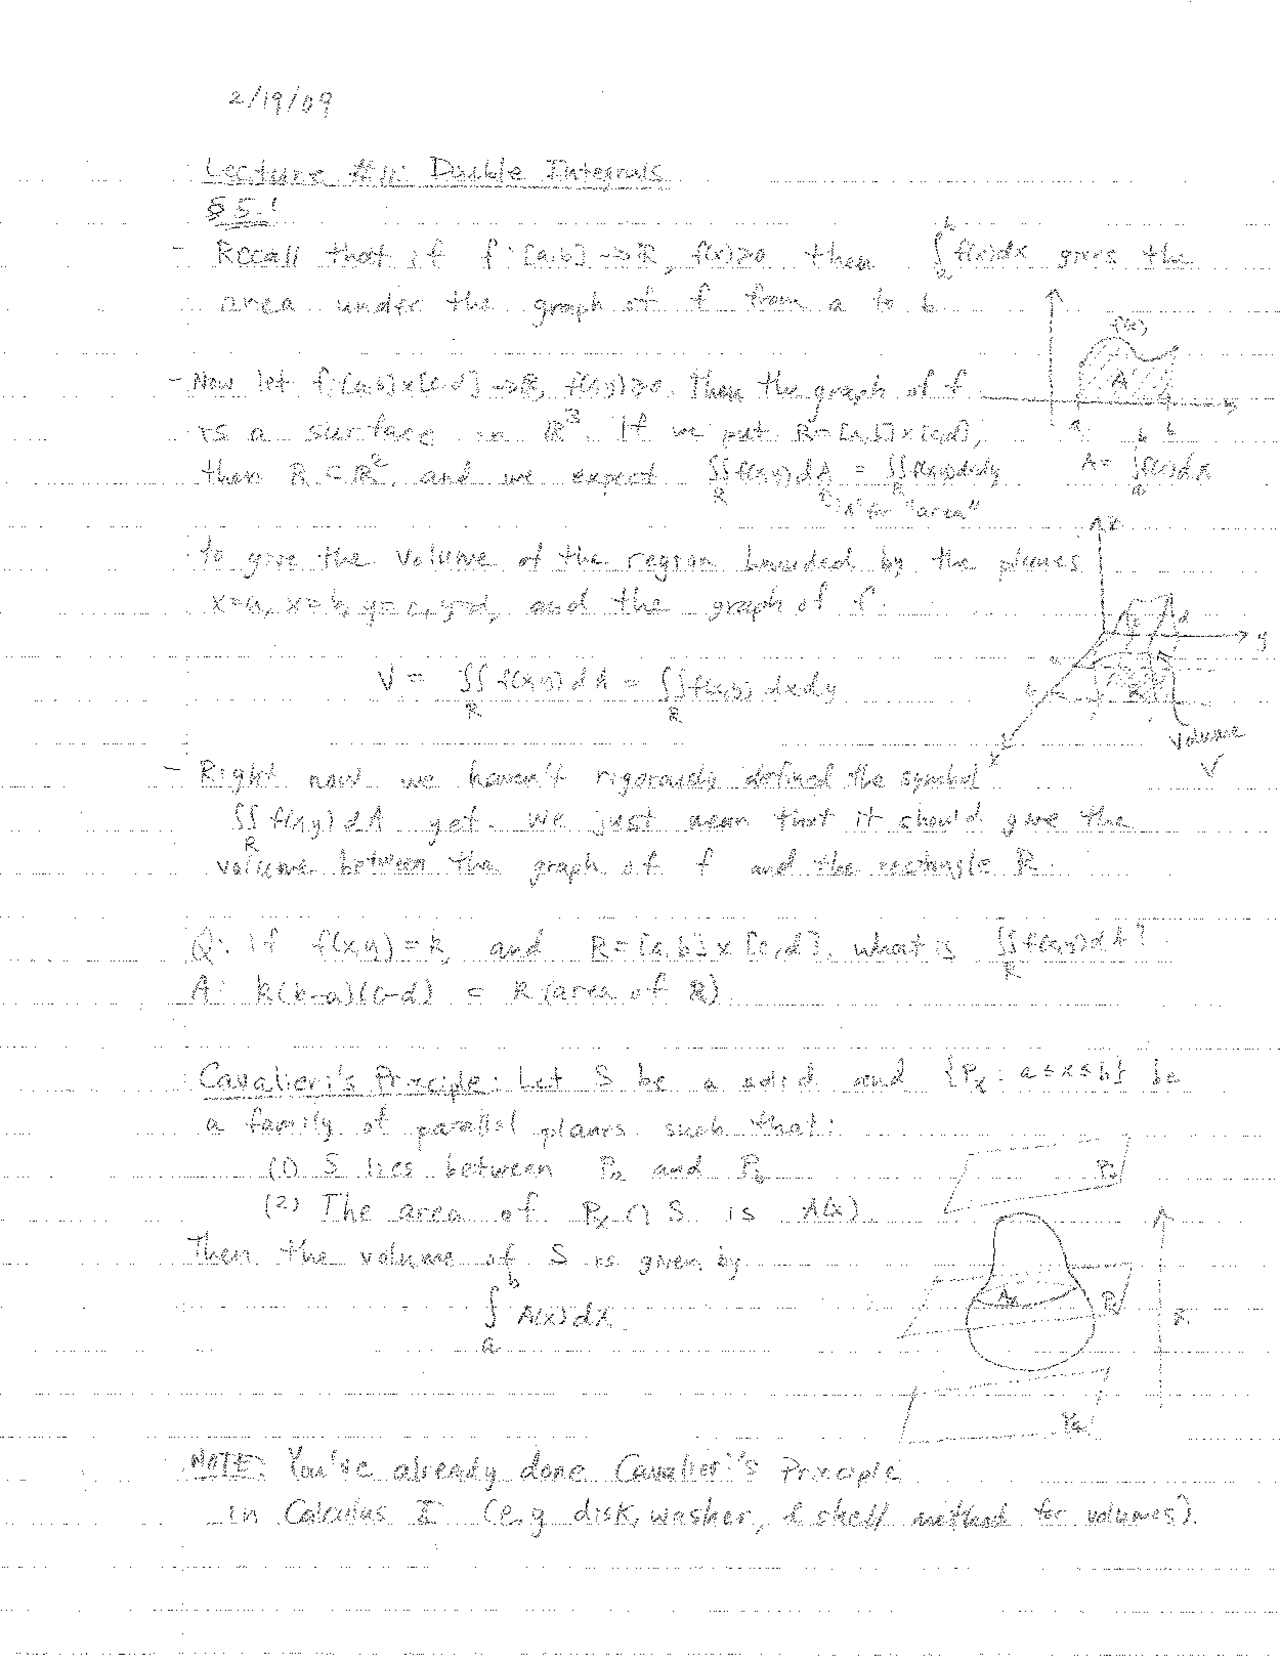 2/19/09
Lecture #11: Double Integrals
§ 5.1
- Recall that if f: [a,b] → ℝ, f(x)≥0 then ∫_a^b f(x)dx gives the
area under the graph of f from a to b
f(x)
A
a b
x
- Now let f: [a,b]×[c,d] → ℝ, f(x,y)≥0. Then the graph of f
is a surface in ℝ³. If we put R=[a,b]×[c,d],
then R ⊂ ℝ², and we expect ∬_R f(x,y)dA = ∬_R f(x,y)dxdy
A = ∫_a^b f(x)dx
"A" for "area"
to give the volume of the region bounded by the planes
x=a, x=b, y=c, y=d, and the graph of f.
z
y
x
a
b
c
d
R
V = ∬_R f(x,y)dA = ∬_R f(x,y) dxdy
Volume
V
- Right now we haven't rigorously defined the symbol
∬_R f(x,y)dA yet. We just mean that it should give the
volume between the graph of f and the rectangle R.
Q: If f(x,y)=k, and R=[a,b]×[c,d], what is ∬_R f(x,y)dA?
A: k(b-a)(c-d) = k(area of R)
Cavalieri's Principle: Let S be a solid and {Pₓ: a≤x≤b} be
a family of parallel planes such that:
(1) S lies between Pₐ and P_b
(2) The area of Pₓ ∩ S is A(x).
Then the volume of S is given by
∫_a^b A(x)dx
P_b
Aₓ
Pₓ
x
Pₐ
NOTE: You've already done Cavalieri's Principle
in Calculus I (e.g disk, washer, & shell method for volumes).